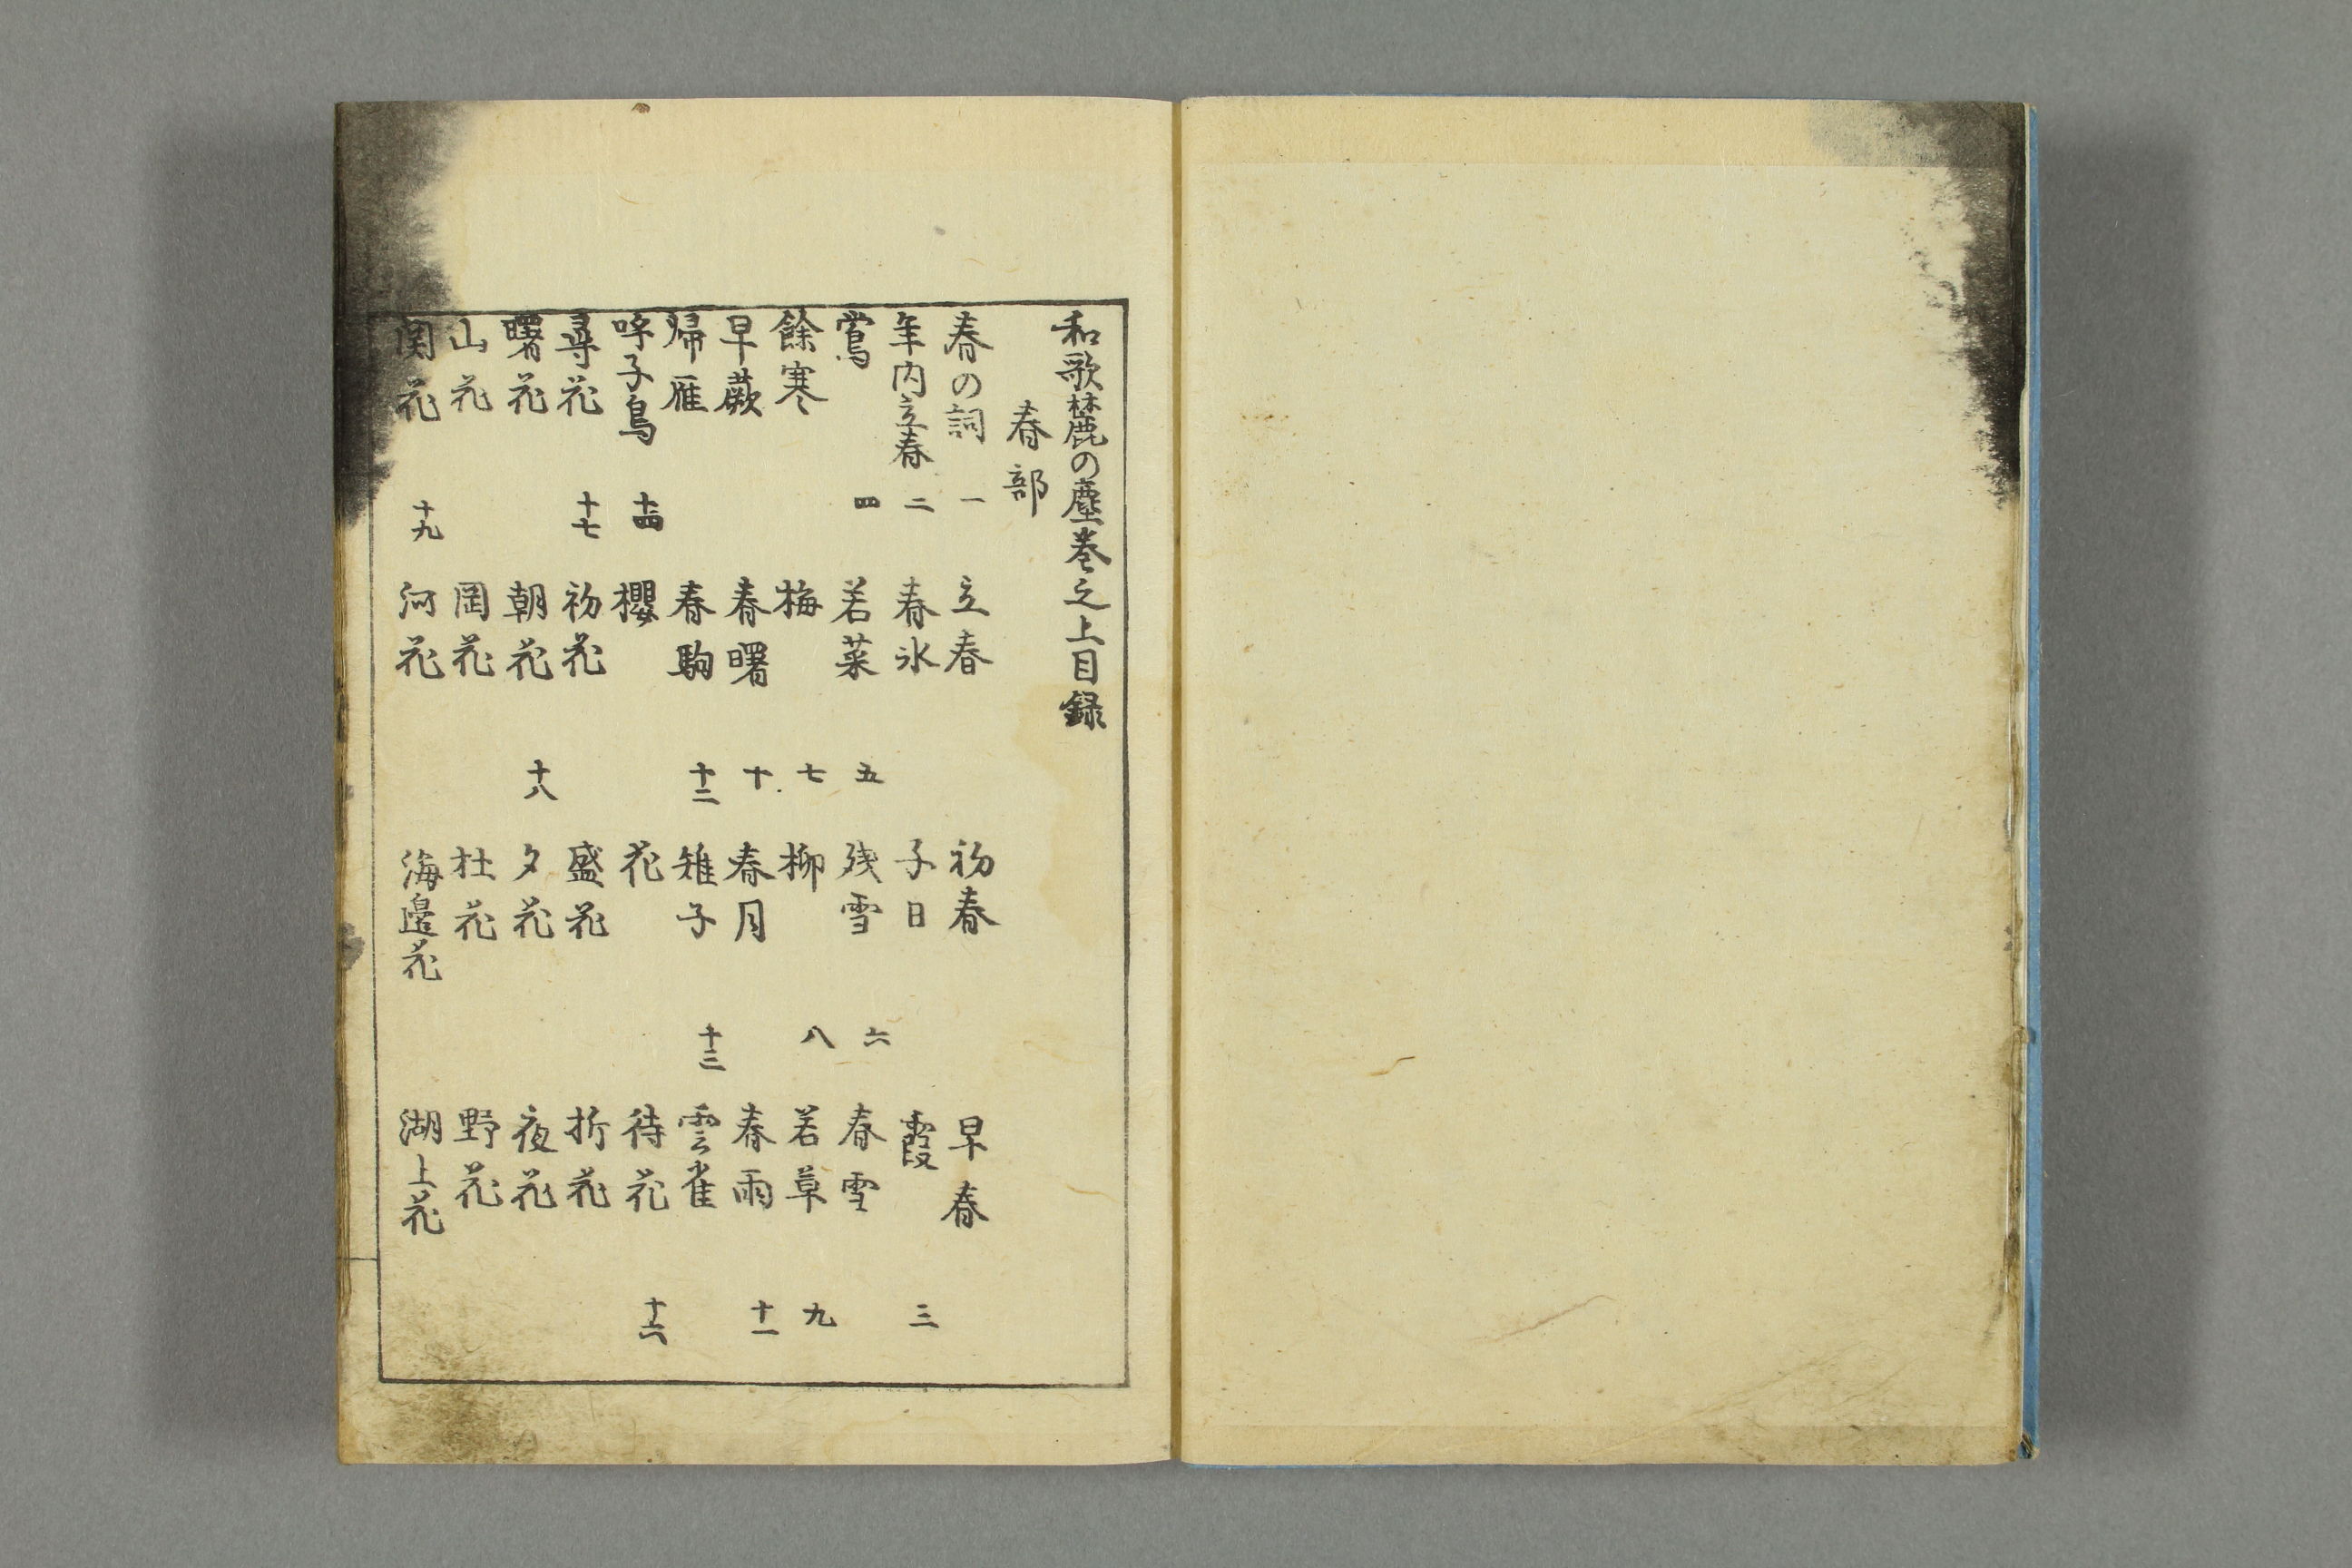 和歌麓の塵巻之上目録
春部
春の詞 一 立春 初春 早春
年内立春 二 春氷 子日 霞 三
鴬 四 若菜 五 残雪 六 春雪
餘寒 梅 七 柳 八 若草 九
早蕨 春曙 十 春月 春雨 十一
帰雁 春駒 十二 雉子 十三 雲雀
呼子鳥 十四 櫻 花 待花 十六
尋花 十七 初花 盛花 折花
曙花 朝花 十八 夕花 夜花
山花 岡花 杜花 野花
関花 十九 河花 海邉花 湖上花